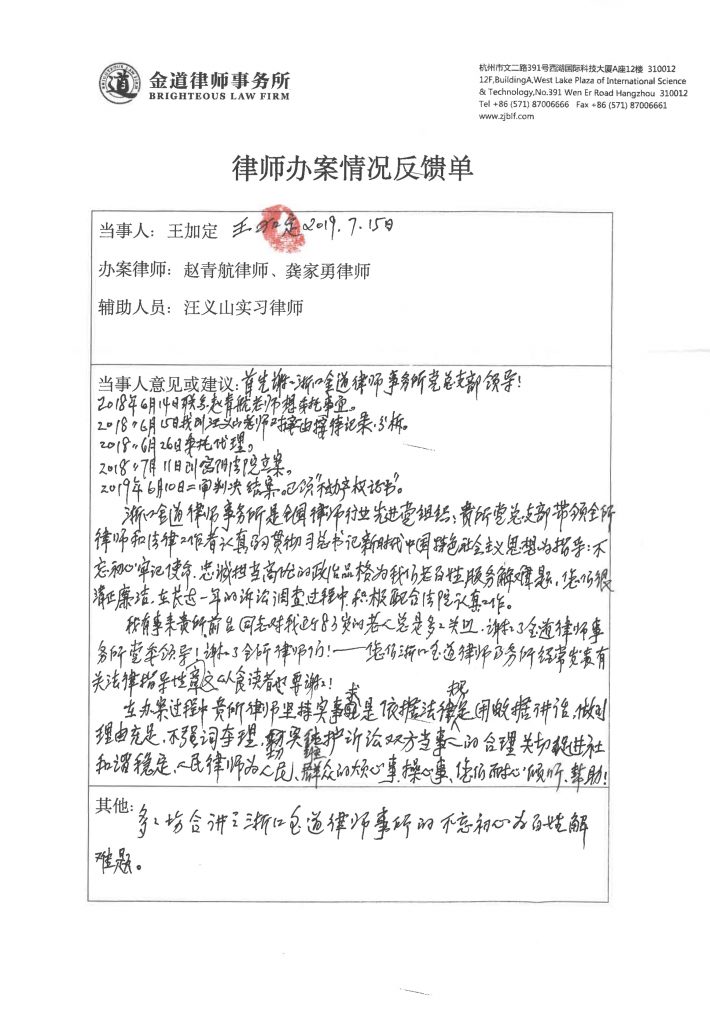 金道律师事务所
BRIGHTEOUS LAW FIRM
杭州市文二路391号西湖国际科技大厦A座12楼 310012
12F,BuildingA,West Lake Plaza of International Science
& Technology,No.391 Wen Er Road Hangzhou 310012
Tel +86 (571) 87006666 Fax +86 (571) 87006661
www.zjblf.com
律师办案情况反馈单
当事人：王加定 王加定2019.7.15日
办案律师：赵青航律师、龚家勇律师
辅助人员：汪义山实习律师
当事人意见或建议：首先谢谢浙江金道律师事务所党总支部领导!
2018年6月14日联系赵青航老师想委托事宜。
2018〃6月15日找到汪义山老师对案由择律记录.分析。
2018〃6月26日委托代理。
2018〃7月11日到富阳法院立案。
2019年6月10日二审判决结果。已领"不动产权证书"。
浙江金道律师事务所是全国律师行业先进党组织；贵所党总支部带领全所
律师和法律工作者认真的贯彻习总书记新时代中国特色社会主义思想为指导：不
忘初心牢记使命.忠诚担当高尚的政治品格为我们老百姓服务解难题，您们很
清正廉洁.在长达一年的诉讼调查过程中.积极配合法院认真工作。
我有事来贵所前台同志对我近83岁的老人总是多多关照.谢谢了金道律师事
务所党委领导!谢谢了全所律师们!——您们浙江金道律师事务所经常发表有
关法律指导性章文从食读者也要谢谢!
在办案过程中贵所律师坚持实事求是依据法律.根是用数据讲话.做到
理由充足.不强词夺理.切实维护诉讼双方当事人的合理关切促进社
和谐稳定.人民律师为人民、群众的烦心事.操心事、您们耐心倾听、帮助!
其他：多々场合讲了浙江金道律师事所的不忘初心为百姓解
难题。